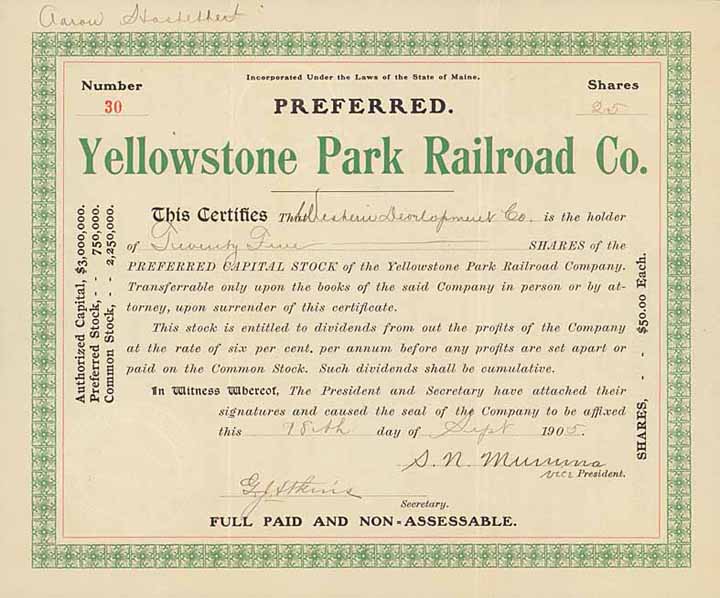 Aaron
Incorporated Under the Laws of the State of Maine.
Number
30
Shares
25
PREFERRED.
Yellowstone Park Railroad Co.
Authorized Capital, $3,000,000.
Preferred Stock, - - 750,000.
Common Stock, - - 2,250,000.
This Certifies That Western Development Co. is the holder
of Twenty Five SHARES of the
PREFERRED CAPITAL STOCK of the Yellowstone Park Railroad Company.
Transferrable only upon the books of the said Company in person or by at-
torney, upon surrender of this certificate.
This stock is entitled to dividends from out the profits of the Company
at the rate of six per cent. per annum before any profits are set apart or
paid on the Common Stock. Such dividends shall be cumulative.
In Witness Whereof, The President and Secretary have attached their
signatures and caused the seal of the Company to be affixed
this 18th day of Sept 1905.
SHARES, - - $50.00 Each.
S. N. Mumma
vice President.
Secretary.
FULL PAID AND NON-ASSESSABLE.